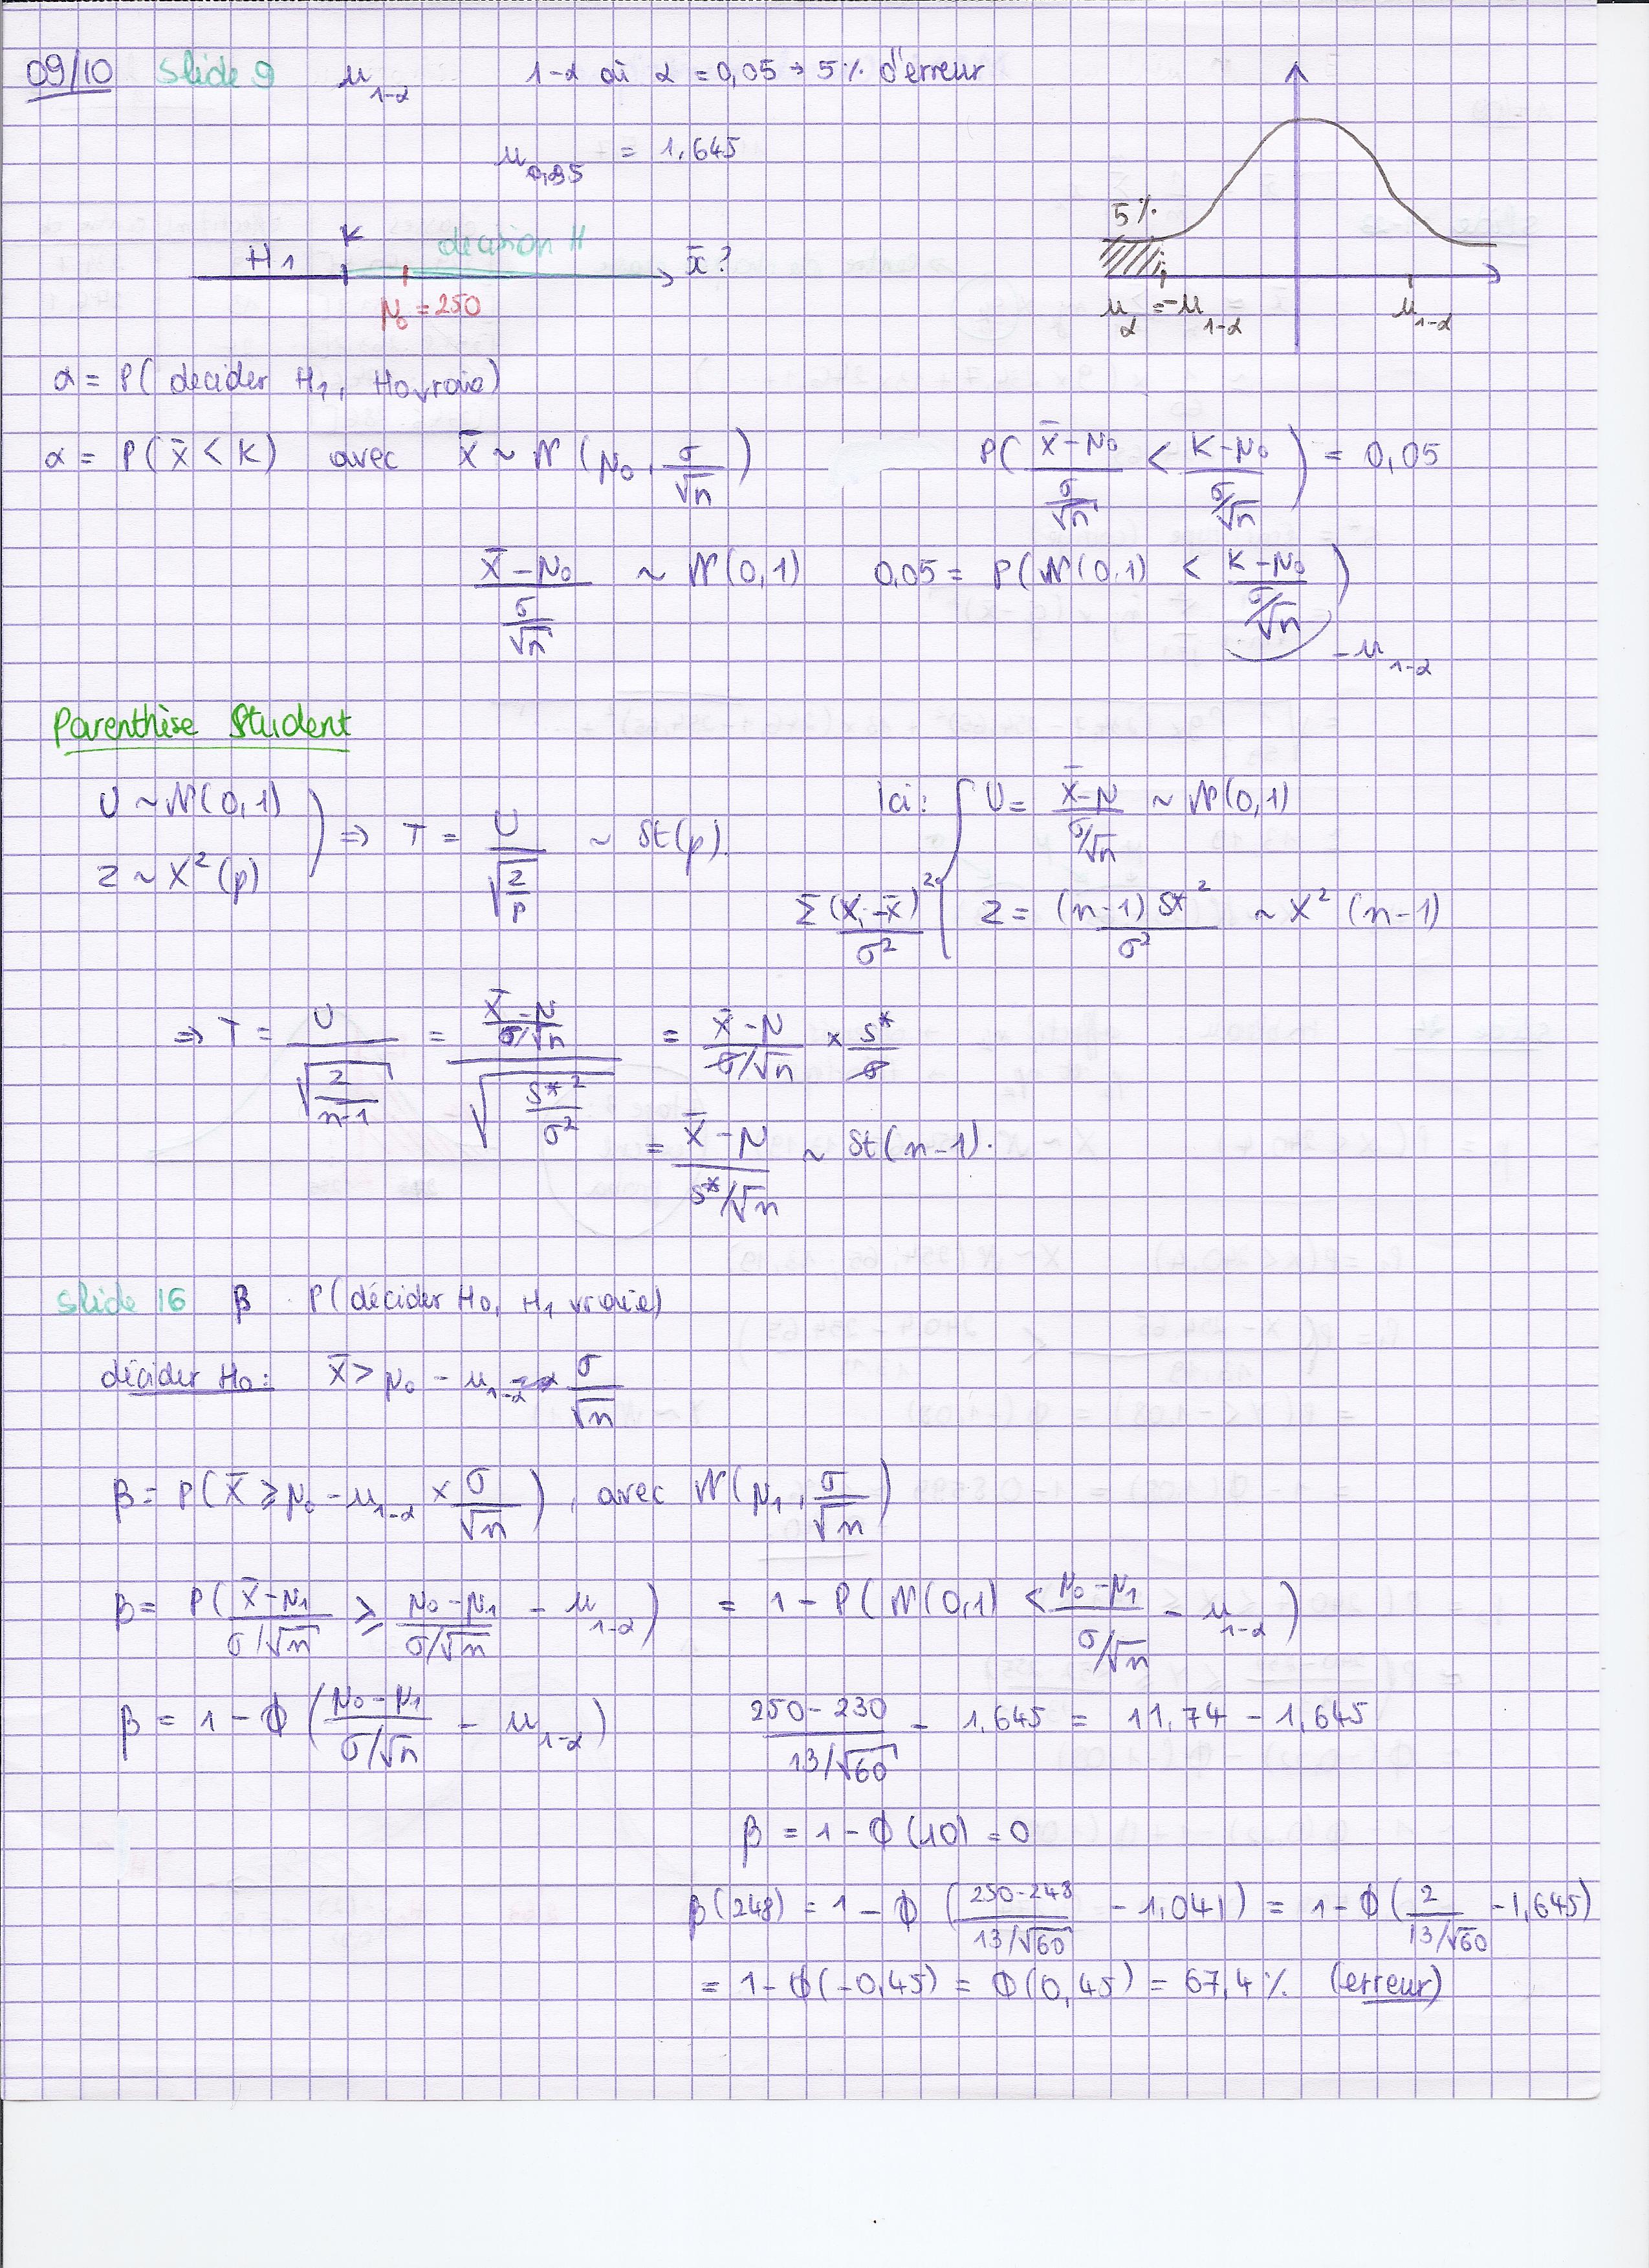 09/10 Slide 9 u_{1-α} 1-α où α = 0,05 → 5% d'erreur
u_{0,95} = 1,645
5%
H1 K decision H x̄?
μ0 = 250
u_α = -u_{1-α} u_{1-α}
α = P( decider H1, H0 vraie)
α = P(x̄ < K) avec x̄ ~ N(μ0, σ/√n) P( (x̄-μ0)/(σ/√n) < (K-μ0)/(σ/√n) ) = 0,05
(x̄-μ0)/(σ/√n) ~ N(0,1) 0,05 = P(N(0,1) < (K-μ0)/(σ/√n) )
-u_{1-α}
Parenthèse Student
U ~ N(0,1)
Z ~ X²(p)
⇒ T = U/√(Z/p) ~ St(p).
Ici: { U = (x̄-μ)/(σ/√n) ~ N(0,1)
Σ(Xi-x̄)²/σ² Z = (n-1)S*²/σ² ~ X²(n-1)
⇒ T = U/√(Z/(n-1)) = ((x̄-μ)/(σ/√n))/√(S*²/σ²) = (x̄-μ)/(σ/√n) × S*/σ
= (x̄-μ)/(S*/√n) ~ St(n-1).
Slide 16 β P(décider H0, H1 vraie)
décider H0: x̄ > μ0 - u_{1-α} σ/√n
β = P(x̄ ≥ μ0 - u_{1-α} × σ/√n), avec N(μ1, σ/√n)
β = P( (x̄-μ1)/(σ/√n) ≥ (μ0-μ1)/(σ/√n) - u_{1-α} ) = 1 - P( N(0,1) < (μ0-μ1)/(σ/√n) - u_{1-α} )
β = 1 - ϕ( (μ0-μ1)/(σ/√n) - u_{1-α} ) (250-230)/(13/√60) - 1,645 = 11,74 - 1,645
β = 1 - ϕ(10) = 0
β(248) = 1 - ϕ( (250-248)/(13/√60) - 1,041 ) = 1 - ϕ( 2/(13/√60) - 1,645)
= 1 - ϕ(-0,45) = ϕ(0,45) = 67,4% (erreur)